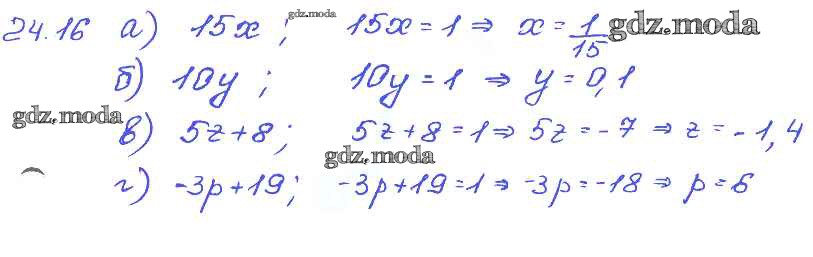 24.16 а) 15x; gdz.moda 15x = 1 ⇒ x = 1/15 gdz.moda
б) 10y; 10y = 1 ⇒ y = 0,1
gdz.moda в) 5z + 8; 5z + 8 = 1 ⇒ 5z = -7 ⇒ z = -1,4
gdz.moda
г) -3p + 19; -3p + 19 = 1 ⇒ -3p = -18 ⇒ p = 6